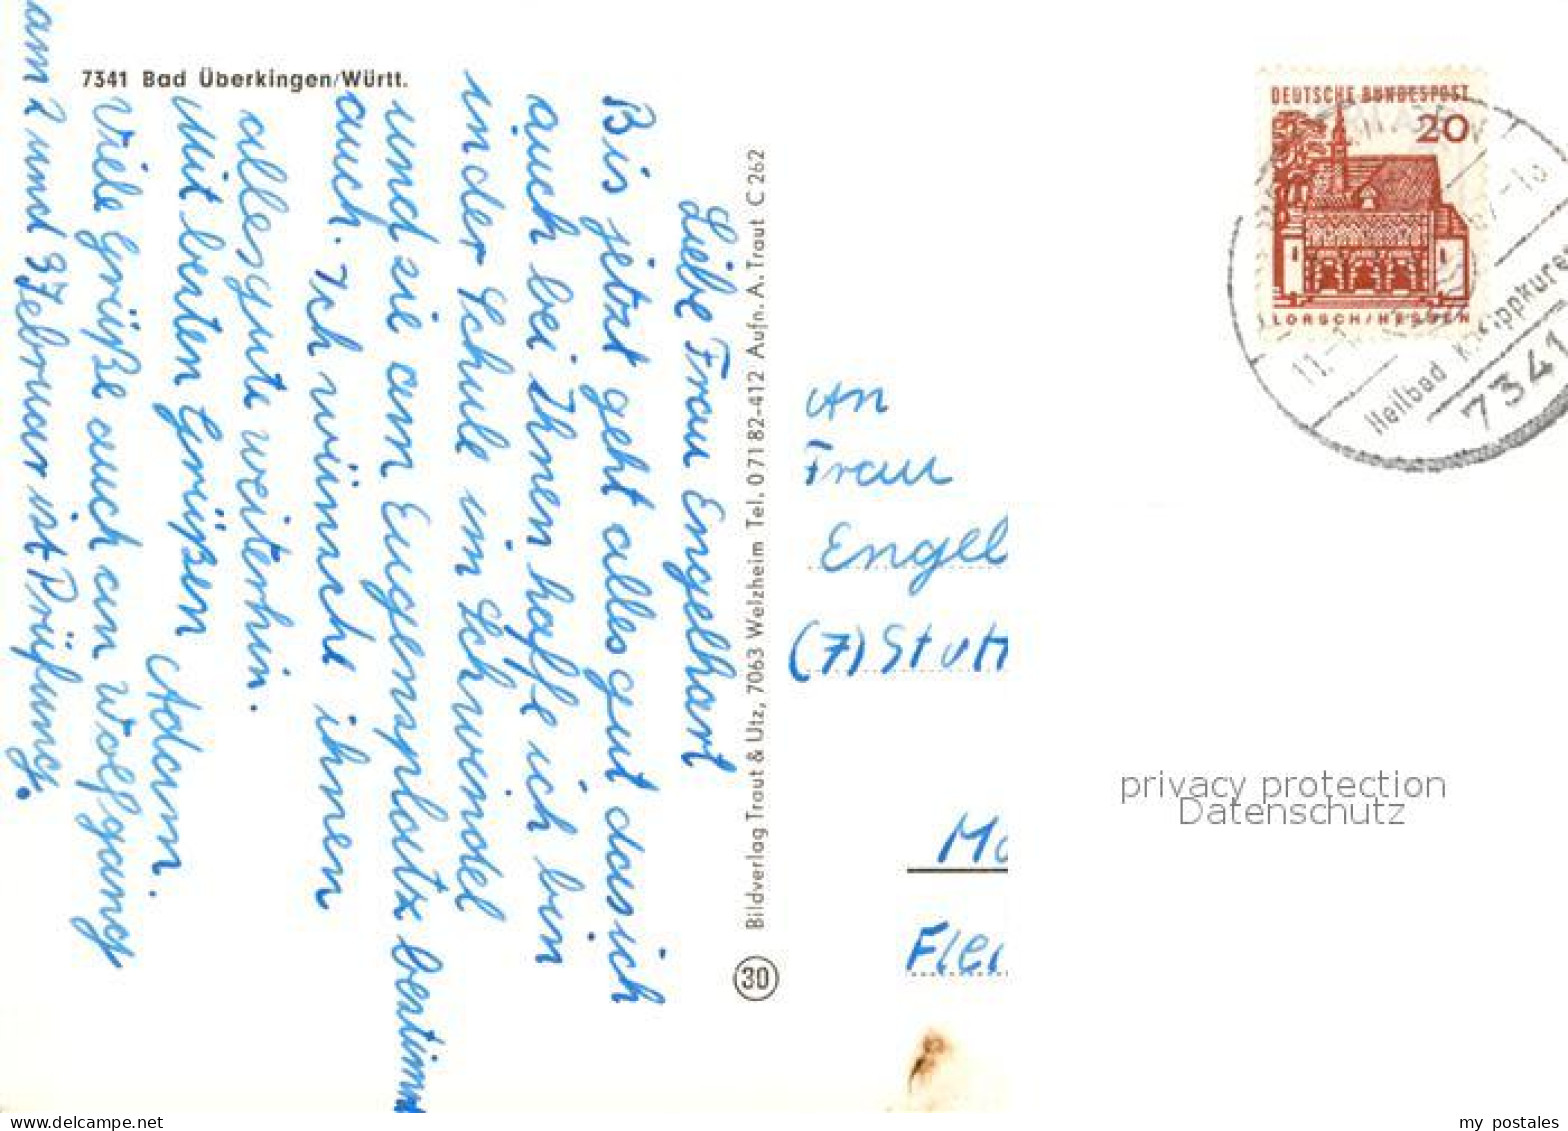 7341 Bad Überkingen/Württ.
Liebe Frau Engelhart
Bis jetzt geht alles gut das ich
auch bei Ihnen hoffe ich bin
in der Schule im Schwindel
und sie am Eugensplatz bestimmt
auch. Ich wünsche ihnen
alles gute weiterhin.
Mit besten Grüßen
Adam.
Viele Grüße auch an Wolfgang
am 2 und 3 Februar ist Prüfung.
Bildverlag Traut & Utz, 7063 Welzheim Tel. 07182-412 Aufn. A. Traut C 262
30
DEUTSCHE BUNDESPOST
20
LORSCH/HESSEN
11.-1
-18
Heilbad
7341
An
Frau
Engel
(7) Stutt
Mo
Flei
privacy protection
Datenschutz
www.delcampe.net
my_postales